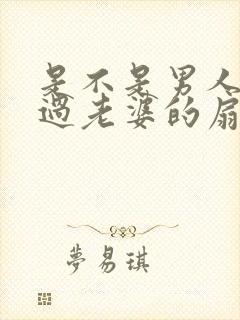 是不是男人
過老婆的扇
夢易琪